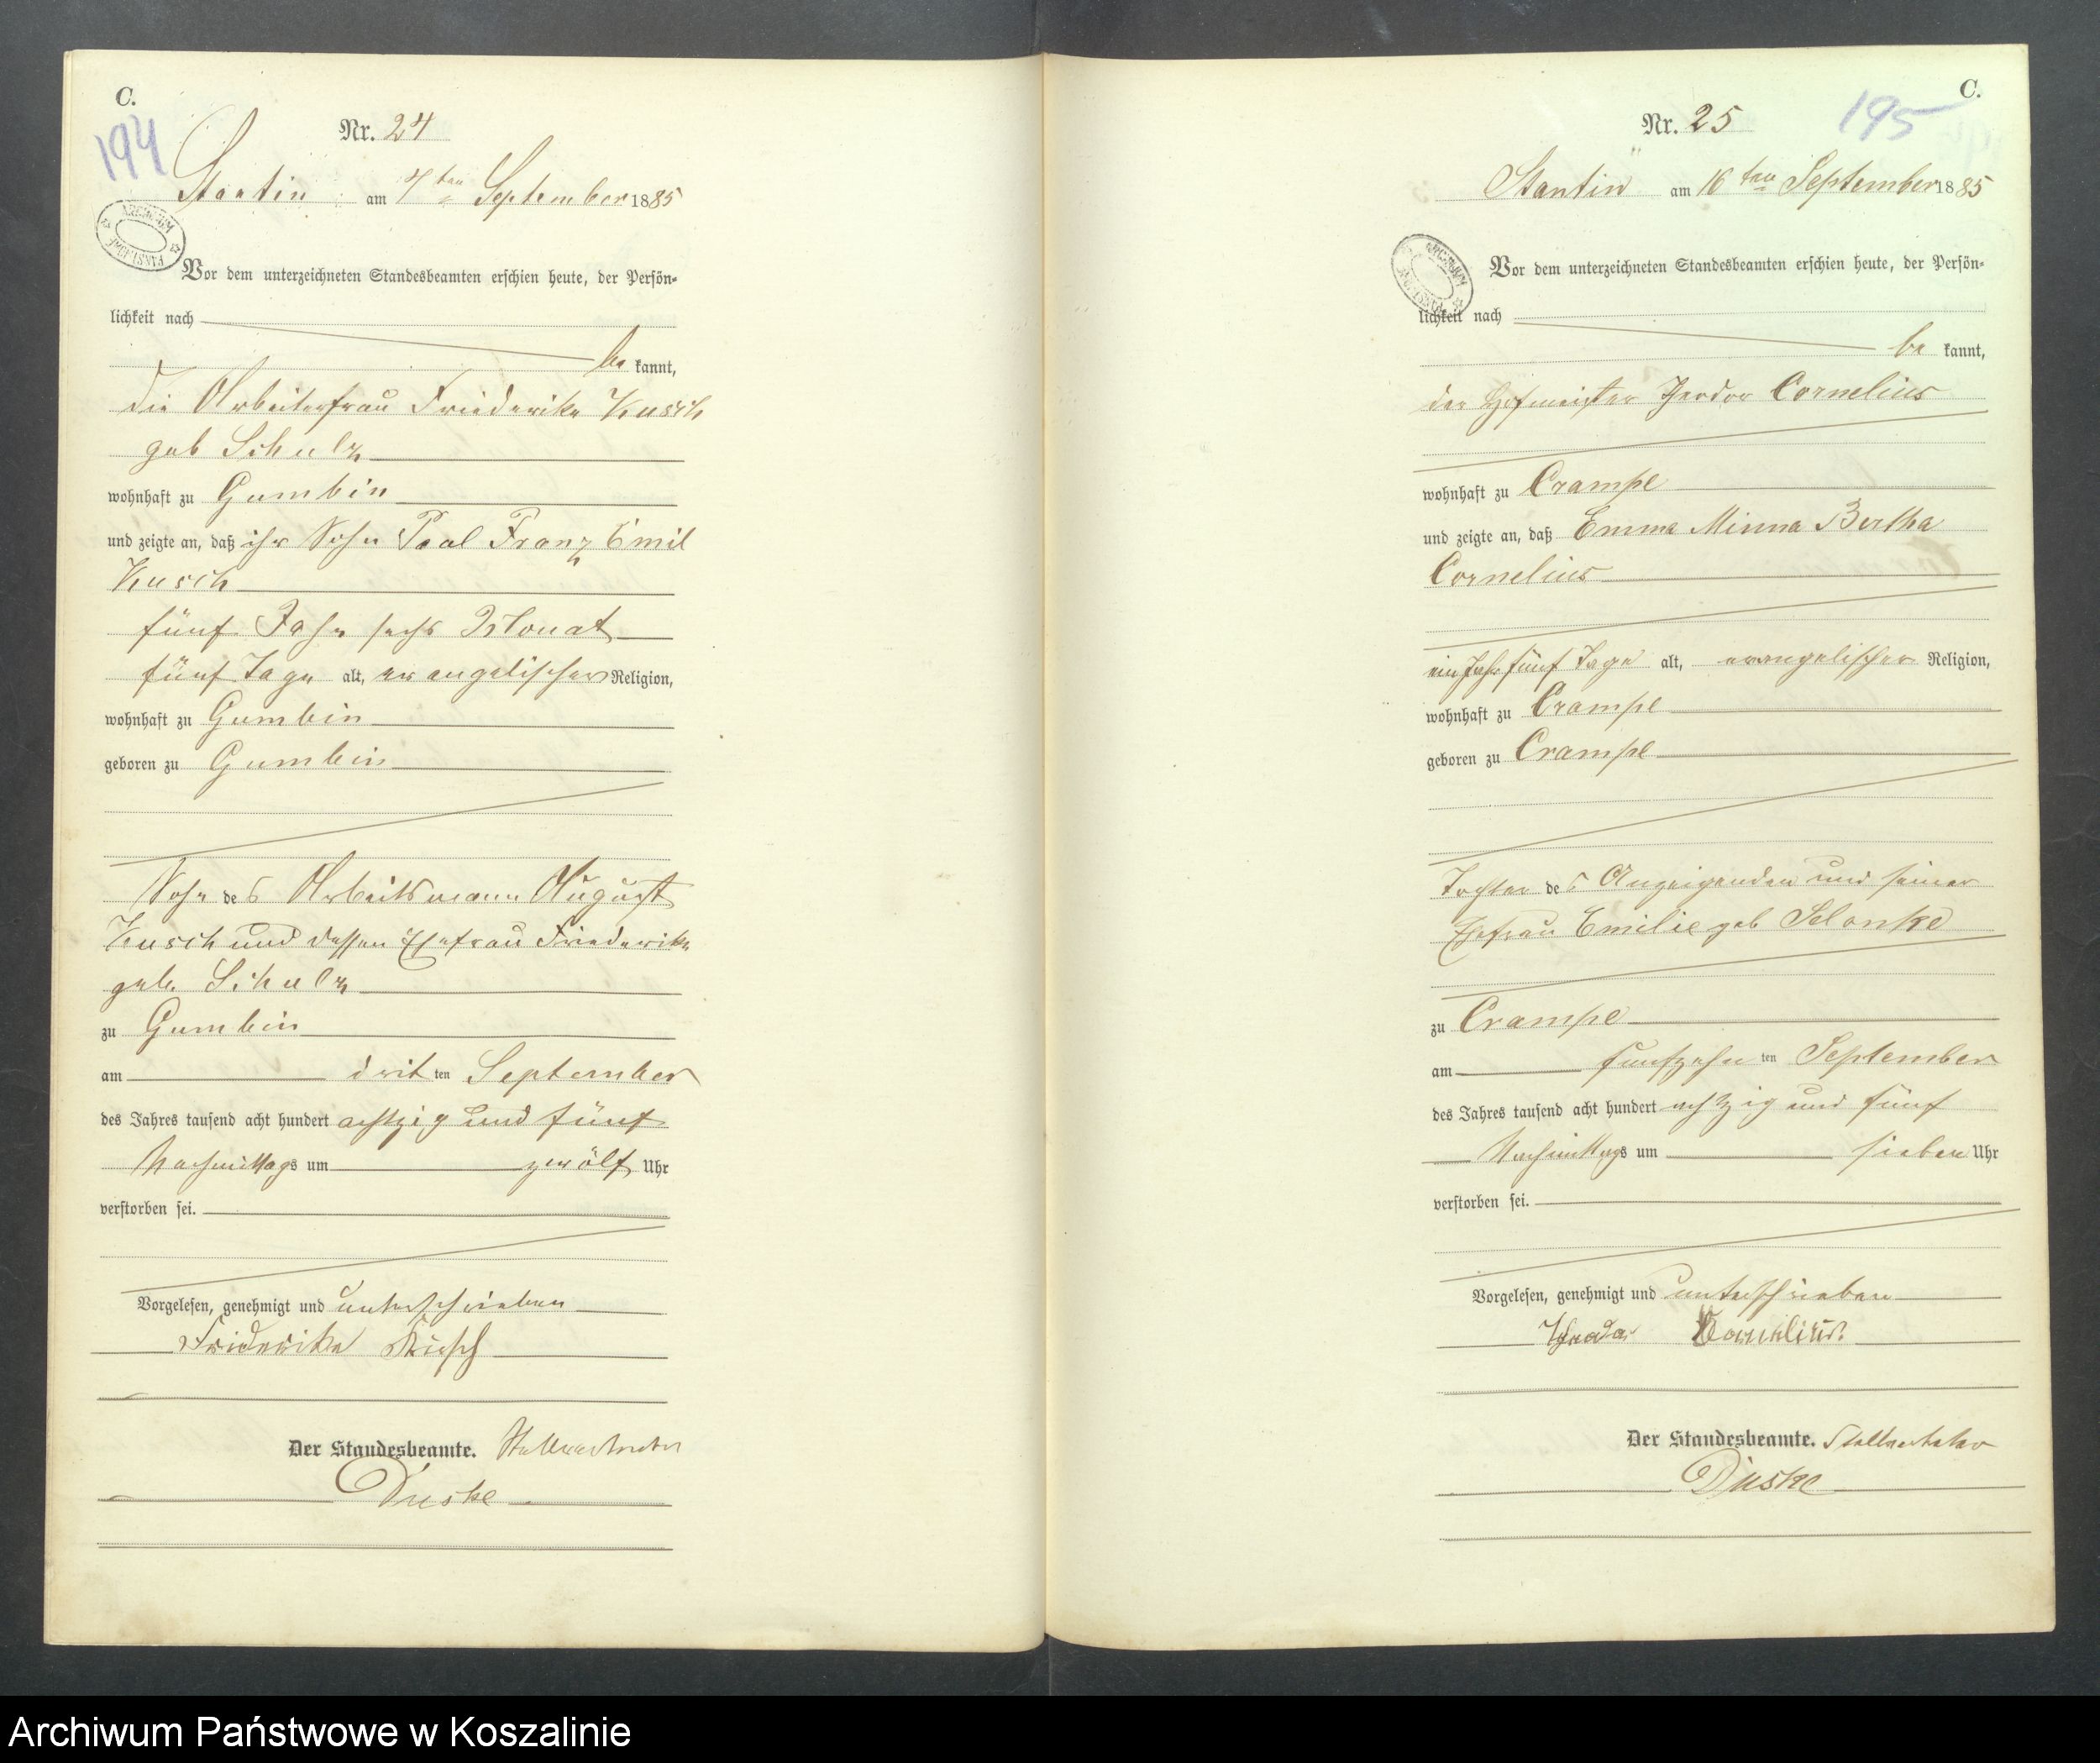 C.
194
Nr. 24
Stantin am 4ten September 1885
Vor dem unterzeichneten Standesbeamten erschien heute, der Persön-
lichkeit nach
be kannt,
die Arbeiterfrau Friederike Kusch
geb Schulz
wohnhaft zu Gumbin
und zeigte an, daß ihr Sohn Paul Franz Emil
Kusch
fünf Jahr sechs Monat
fünf Tage alt, evangelischer Religion,
wohnhaft zu Gumbin
geboren zu Gumbin
Sohn des Arbeitsmann August
Kusch und dessen Ehefrau Friederike
geb. Schulz
zu Gumbin
am drit ten September
des Jahres tausend acht hundert achtzig und fünf
Nachmittags um zwölf Uhr
verstorben sei.
Vorgelesen, genehmigt und unterschrieben
Friderike Kusch
Der Standesbeamte. Stellvertreter
Duske
C.
195
Nr. 25
Stantin am 16ten September 1885
Vor dem unterzeichneten Standesbeamten erschien heute, der Persön-
lichkeit nach
be kannt,
der Hofmeister Theodor Cornelius
wohnhaft zu Crampe
und zeigte an, daß Emma Minna Bertha
Cornelius
ein Jahr fünf Tage alt, evangelischer Religion,
wohnhaft zu Crampe
geboren zu Crampe
Tochter des Anzeigenden und seiner
Ehefrau Emilie geb Selonke
zu Crampe
am funfzehn ten September
des Jahres tausend acht hundert achtzig und fünf
Nachmittags um sieben Uhr
verstorben sei.
Vorgelesen, genehmigt und unterschrieben
Cornelius.
Der Standesbeamte. Stellvertreter
Duske
Archiwum Państwowe w Koszalinie